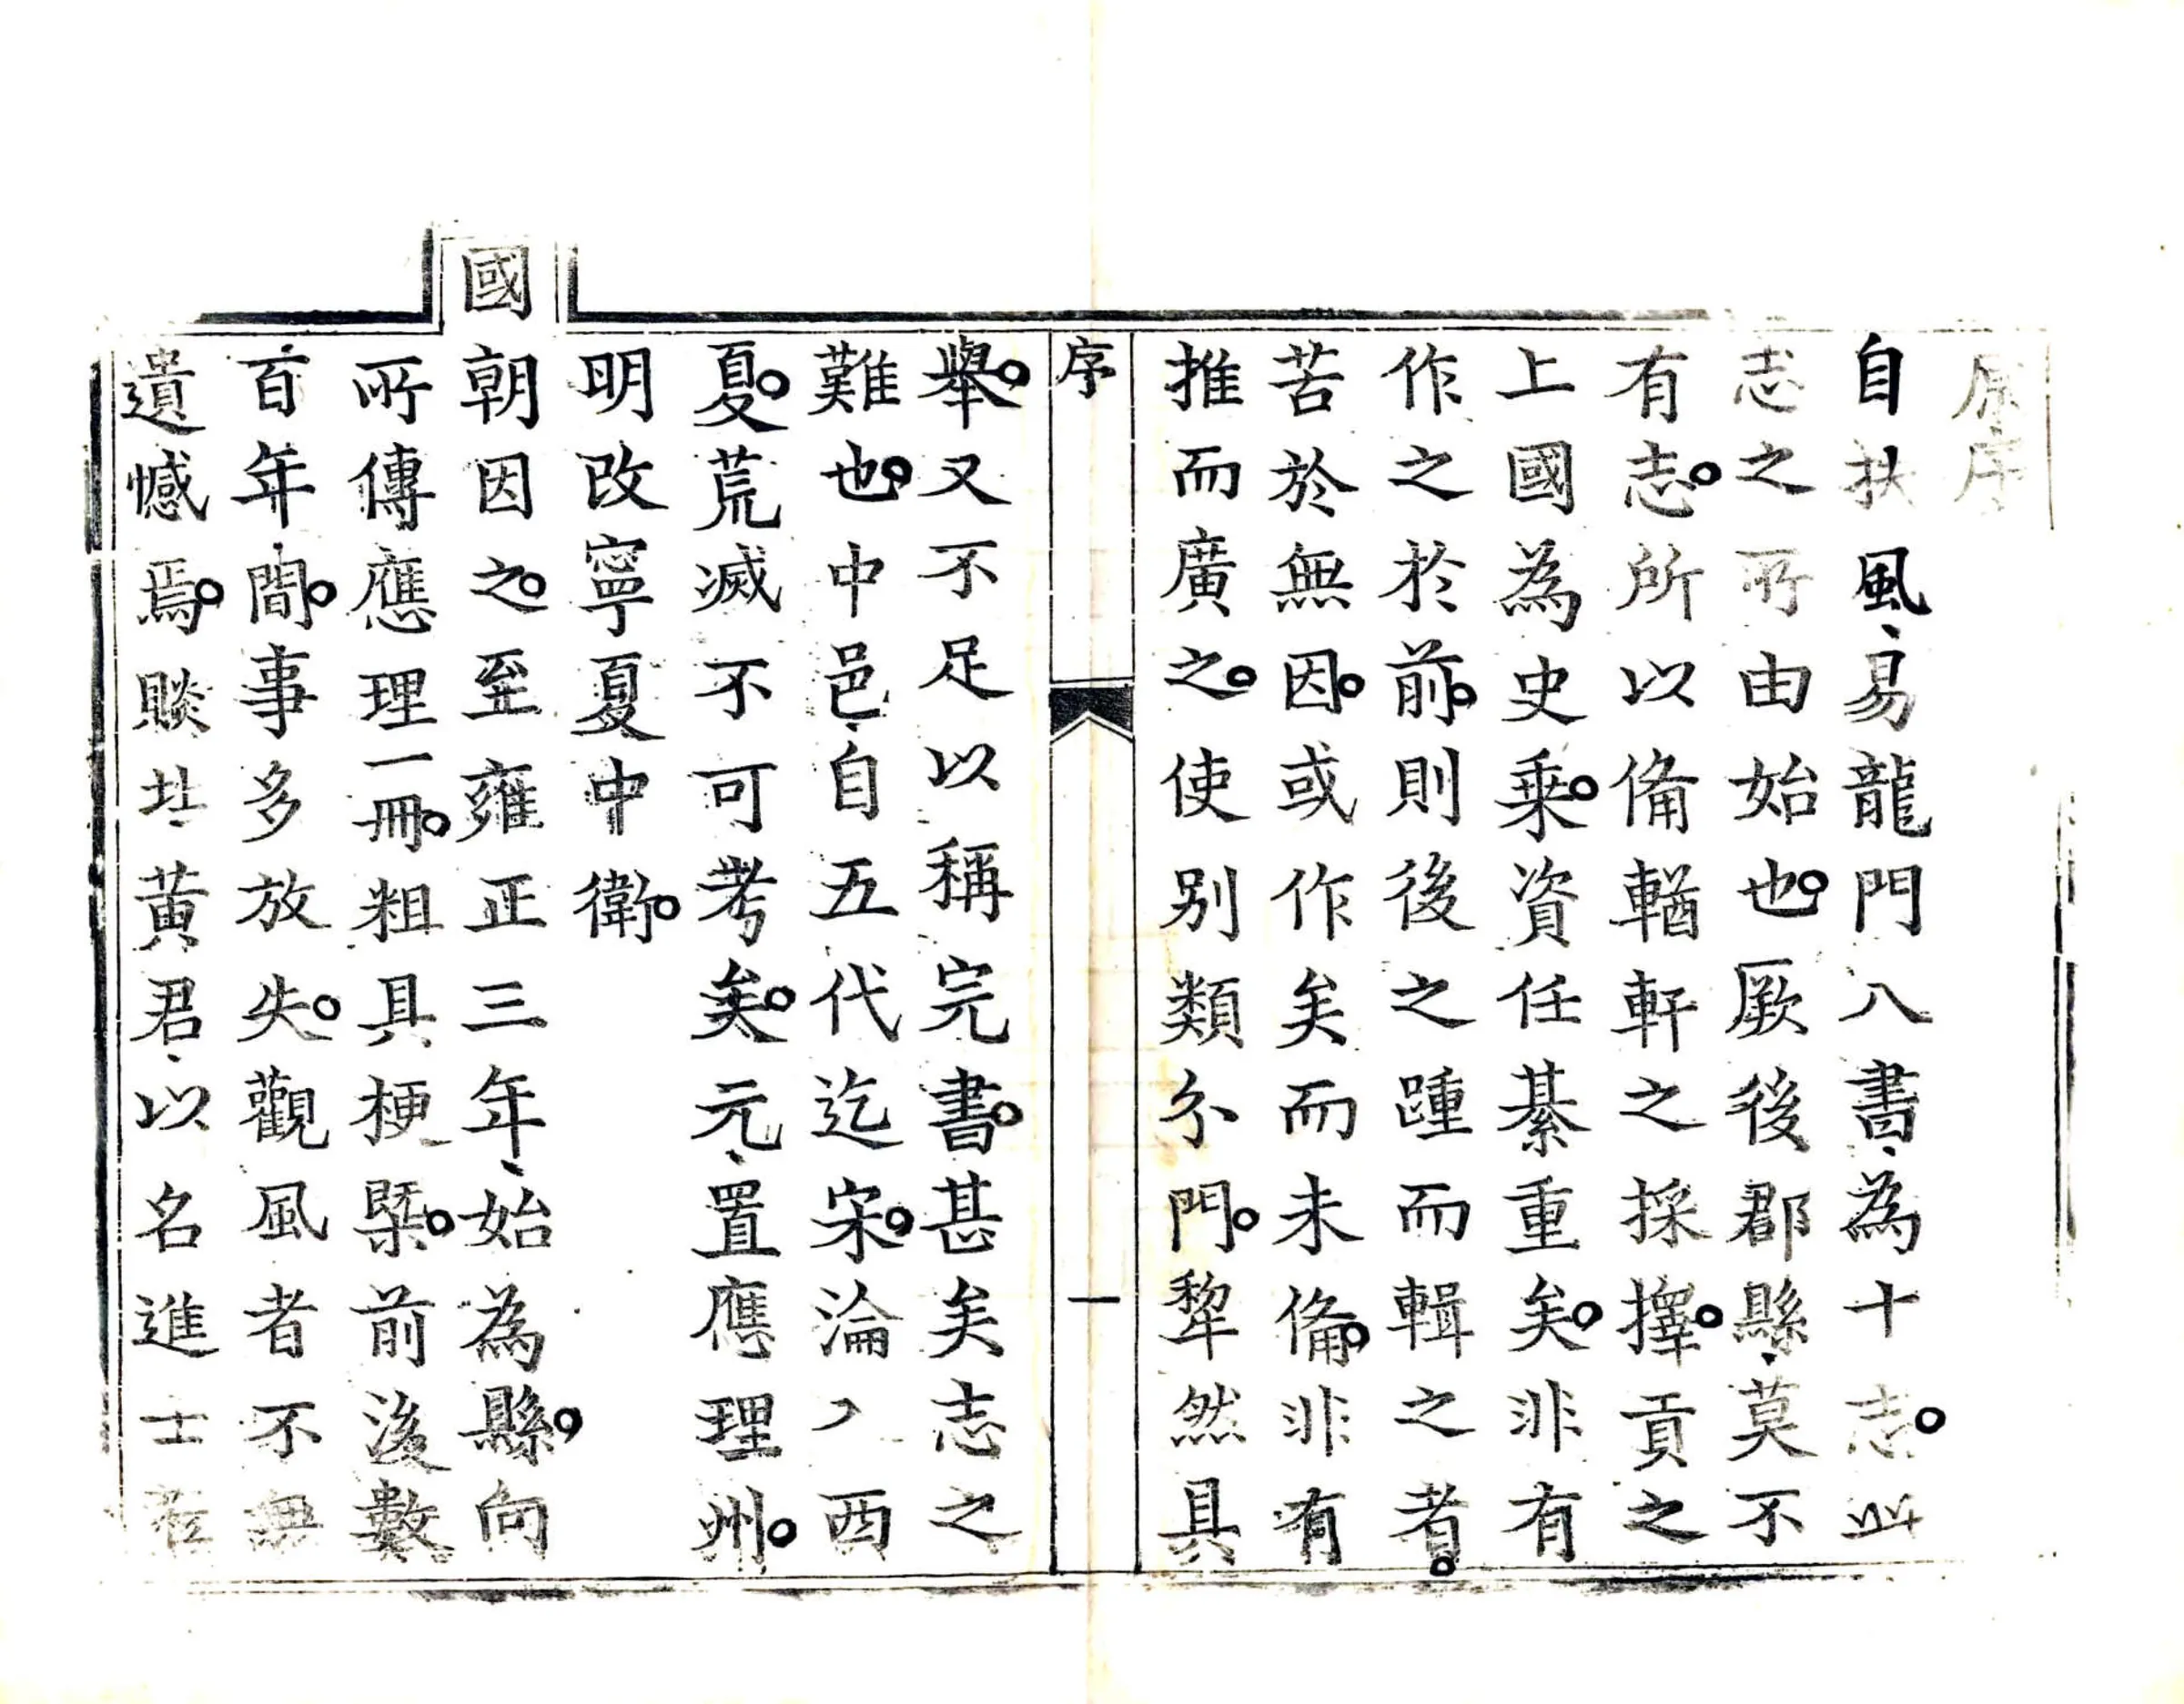 原序
自扶風、易龍門八書、為十志。此
志之所由始也。厥後郡縣、莫不
有志。所以備輶軒之採擇。貢之
上國為史乗。資任綦重矣。非有
作之於前。則後之踵而輯之者。
苦於無因。或作矣而未備。非有
推而廣之。使别類分門。犂然具
序
一
舉。又不足以稱完書。甚矣志之
難也。中邑、自五代迄宋。淪入西
夏。荒滅不可考矣。元、置應理州。
明改寧夏中衛。
國朝因之。至雍正三年、始為縣。向
所傳應理一冊。粗具梗槩。前後數
百年、間。事多放失。觀風者不無
遺憾焉。睒址、黄君、以名進士蒞